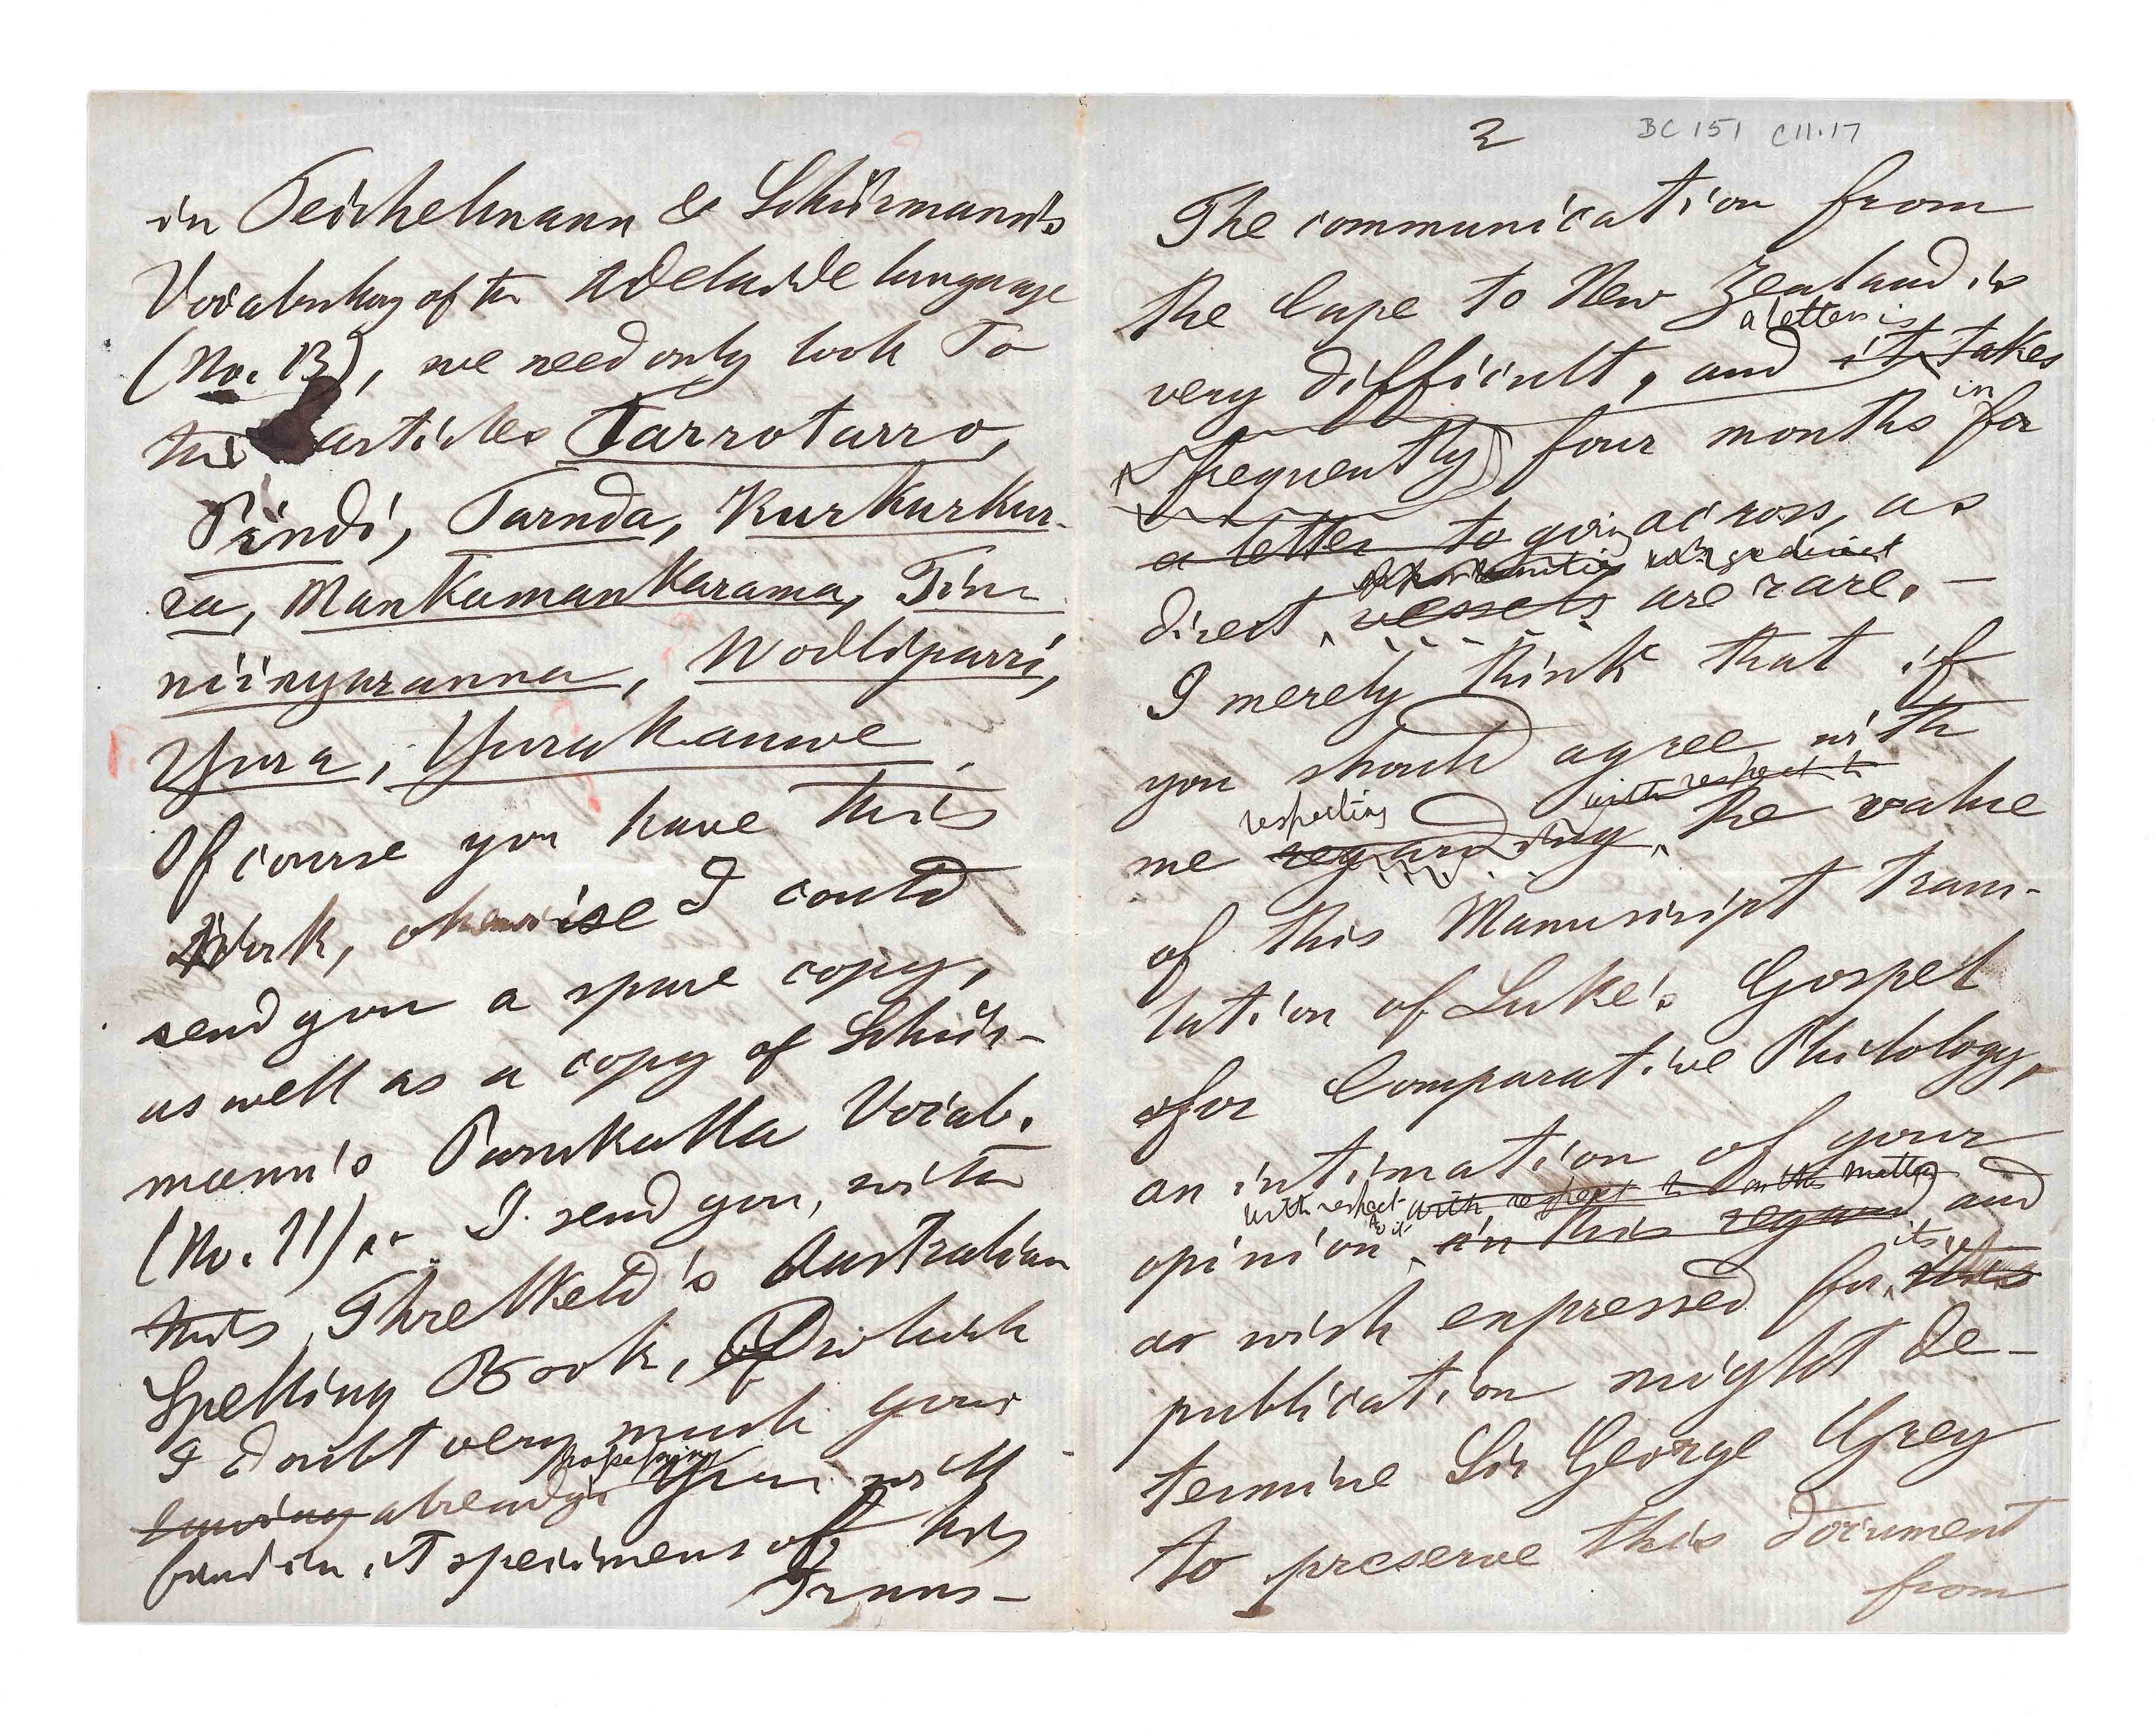 in Teichelmann & Schürmann's
Vocabulary of the Adelaide language
(No. 13), we need only look to
the articles Tarrotarro,
Pindi, Tarnda, Kurkurkur-
ra, Mankamankarama, Tin-
niinyaranna, Wodliparri,
Yura, Yurakauwe.
Of course you have this
Work, otherwise I could
send you a spare copy,
as well as a copy of Schür-
mann's Parnkalla Vocab.
(No. 11) I send you, with
this Threlkeld's Australian
Spelling Book, of which
I doubt very much your
possessing
having already. You will
find in it specimens of his
Trans-
2
BC 151 C11.17
The communication from
the Cape to New Zealand is
a letter is
very difficult, and it takes
in
frequently four months for
a letter to going across, as
opportunities
direct vessels are rare. —
I merely think that if
you should agree with
with respect to
respecting
me regarding the value
of this Manuscript trans-
lation of Luke's Gospel
for Comparative Philology,
an intimation of your
with respect to it with respect to in this matter
opinion in this regard and
its
a wish expressed for this
publication might de-
termine Sir George Grey
to preserve this document
from